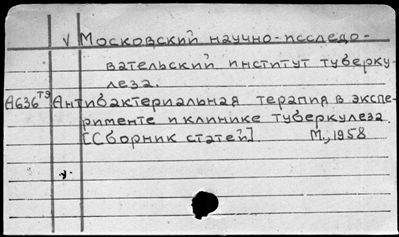 V Московский научно-исследо-
вательский институт туберку-
леза.
А636ТЭ Антибактериальная терапия в экспе-
рименте и клинике туберкулеза.
[Сборник статей]. М., 1958